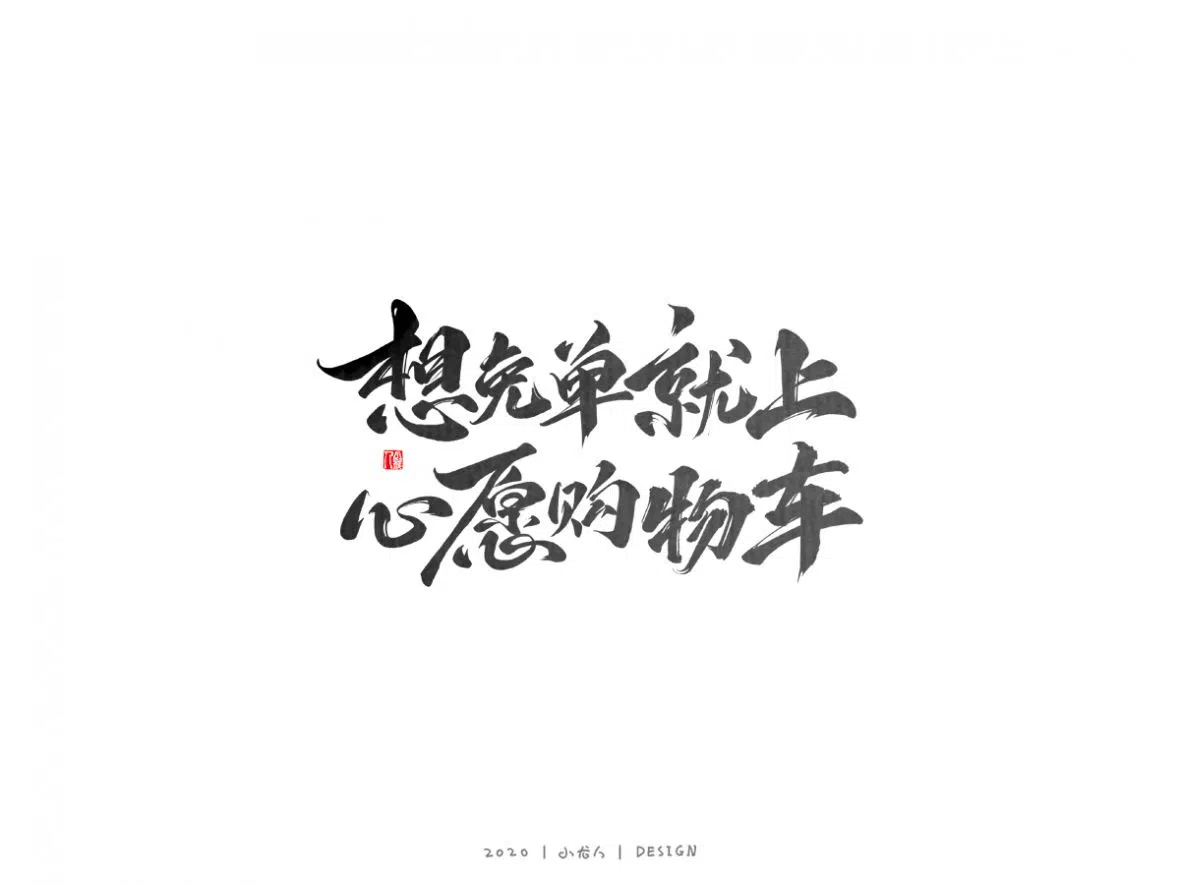 想免单就上
心愿购物车
2020 | 小龙人 | DESIGN